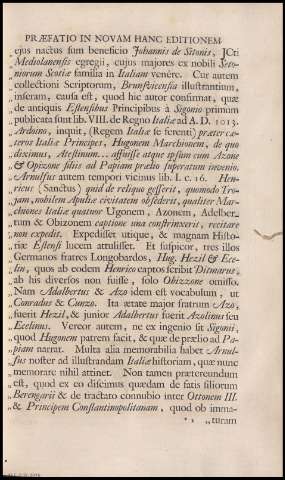 PRÆFATIO IN NOVAM HANC EDITIONEM
ejus nactus sum beneficio Johannis de Sitonis, JCti
„ Mediolanensis egregii, cujus majores ex nobili Seto-
„ niorum Scotiæ familia in Italiam venêre. Cur autem
„ collectioni Scriptorum, Brunsvicensia illustrantium,
„ inseram, causa est, quod hic autor confirmat, quæ
„ de antiquis Estensibus Principibus à Sigonio primum
„ publicata sunt lib. VIII. de Regno Italiæ ad A. D. 1013.
„ Ardoino, inquit, (Regem Italiæ se ferenti) præter cæ-
„ teros Italiæ Principes, Hugonem Marchionem, de quo
„ deximus, Atestinum... affuisse atque ipsum cum Azone
„ & Opizone filiis ad Papiam prælio superatum invenio.
„ Arnulfus autem tempori vicinus lib. I. c. 16. Hen-
„ ricus (Sanctus) quid de reliquo gesserit, quomodo Tro-
„ jam, nobilem Apuliæ civitatem obsederit, qualiter Mar-
„ chiones Italiæ quatuor Ugonem, Azonem, Adelber-
„ tum & Obizonem captione una constrinxerit, recitare
„ non expedit. Expedisset utique, & magnam Histo-
„ riæ Estensi lucem attulisset. Et suspicor, tres illos
„ Germanos fratres Longobardos, Hug. Hezil & Ece-
„ lin, quos ab eodem Henrico captos scribit Ditmarus,
„ ab his diversos non fuisse, solo Obizzone omisso.
„ Nam Adalbertus & Azo idem est vocabulum, ut
„ Conradus & Cunzo. Ita ætate major fratrum Azo,
„ fuerit Hezil, & junior Adalbertus fuerit Azolinus seu
„ Ecelinus. Vereor autem, ne ex ingenio sit Sigonii,
„ quod Hugonem patrem facit, & quæ de prælio ad Pa-
„ piam narrat. Multa alia memorabilia habet Arnul-
„ fus noster ad illustrandam Italiæ historiam, quæ nunc
„ memorare nihil attinet. Non tamen prætereundum
„ est, quod ex eo discimus quædam de fatis filiorum
„ Berengarii & de tractato connubio inter Ottonem III.
„ & Principem Constantinopolitanam, quod ob imma-
„ turam